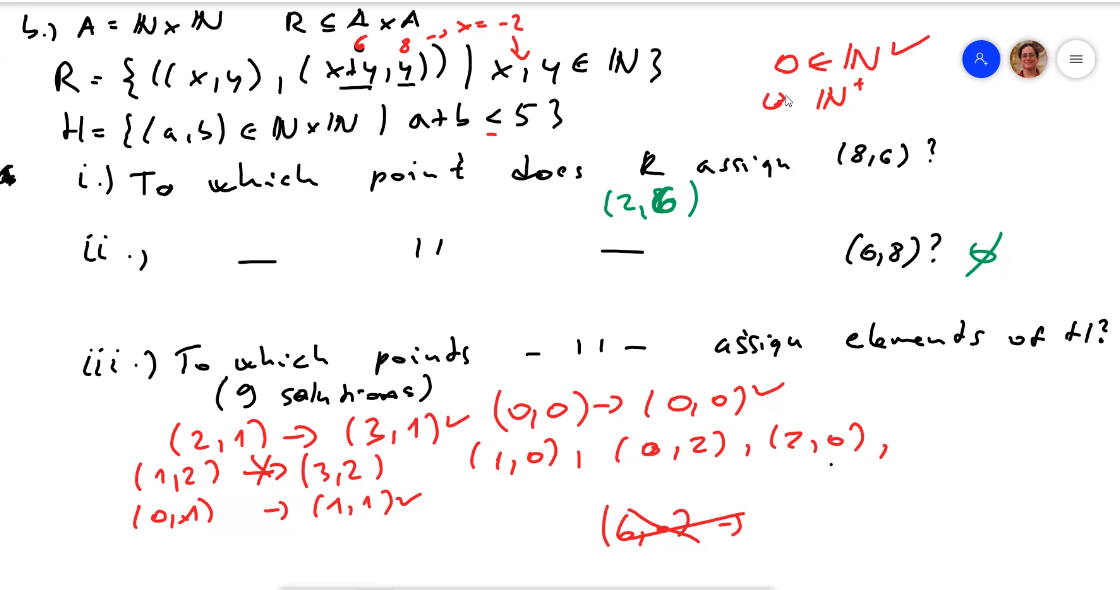 b.) A = ℕ×ℕ R ⊆ A×A
6 8 → x = -2
R = {((x,y), (x+y, y)) | x,y ∈ ℕ}
0 ∈ ℕ ✓
ℕ⁺
H = {(a,b) ∈ ℕ×ℕ | a+b < 5}
i.) To which point does R assign (8,6)?
(2,6)
ii.) — '' — (6,8)? ∅
iii.) To which points - '' - assign elements of H?
(9 solutions)
(2,1) → (3,1) ✓ (0,0) → (0,0) ✓
(1,2) → (3,2) (1,0), (0,2), (2,0),
(0,1) → (1,1) ✓